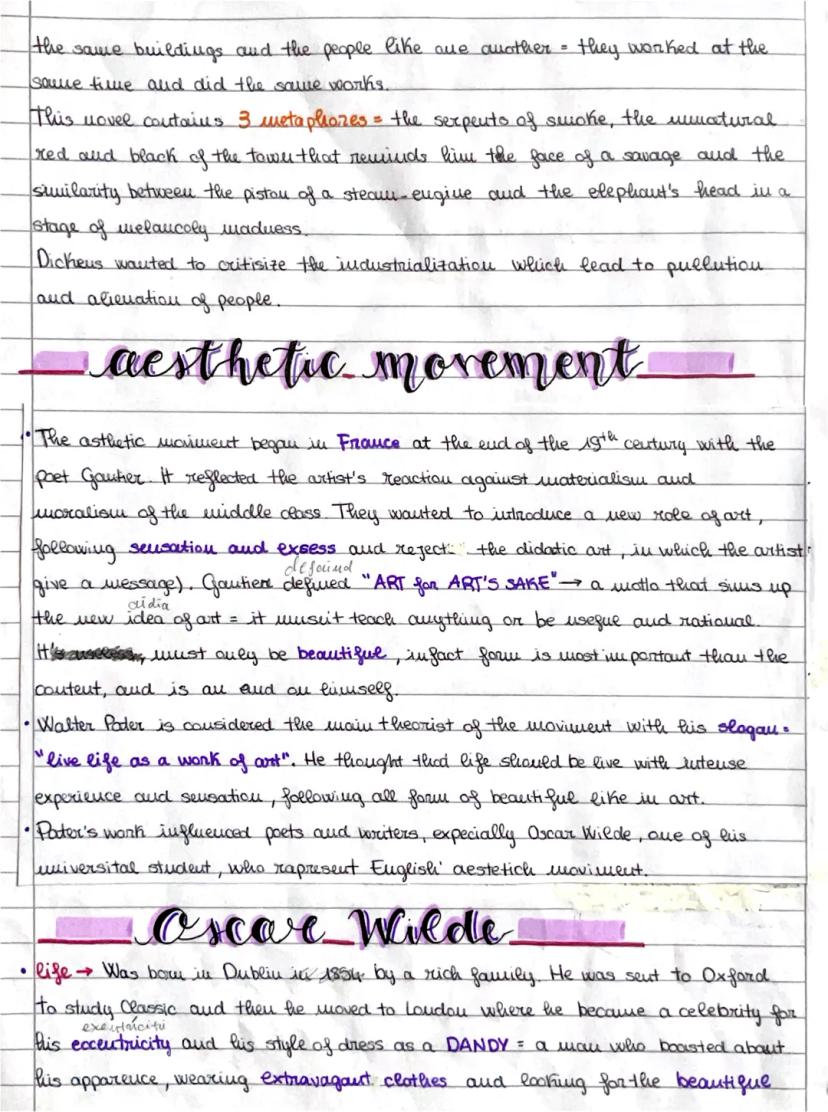 the same buildings and the people like one another = they worked at the
same time and did the same works.
This novel contains 3 metaphores = the serpents of smoke, the unnatural
red and black of the town that reminds him the face of a savage and the
similarity between the piston of a steam-engine and the elephant's head in a
stage of melancoly madness.
Dickens wanted to critisize the industrialization which lead to pullution
and alienation of people.
aesthetic movement
• The asthetic moviment began in France at the end of the 19th century with the
poet Gautier. It reflected the artist's reaction against materialism and
moralism of the middle class. They wanted to introduce a new role of art,
following sensation and exsess and reject the didatic art, in which the artist
defaind
give a message). Gautier defined "ART for ART'S SAKE" → a motto that sums up
aidia
the new idea of art = it munsit teach anything or be usefue and rational.
It must only be beautiful, infact form is most important than the
content, and is an end on himself.
• Walter Pater is considered the main theorist of the moviment with his slogan =
"live life as a work of art". He thought that life should be live with intense
experience and sensation, following all form of beautiful like in art.
• Pater's work influenced poets and writers, expecially Oscar Wilde, one of his
universital student, who rapresent English' aestetich moviment.
Oscar Wilde
• life → Was born in Dublin in 1854 by a rich family. He was sent to Oxford
to study Classic and then he moved to London where he became a celebrity for
his eccentricity and his style of dress as a DANDY = a man who boasted about
his apparence, wearing extravagant clothes and looking for the beautiful